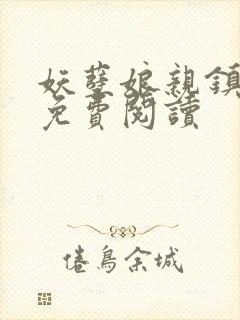 妖孽娘親鎮
免費閱讀
倦鳥余城